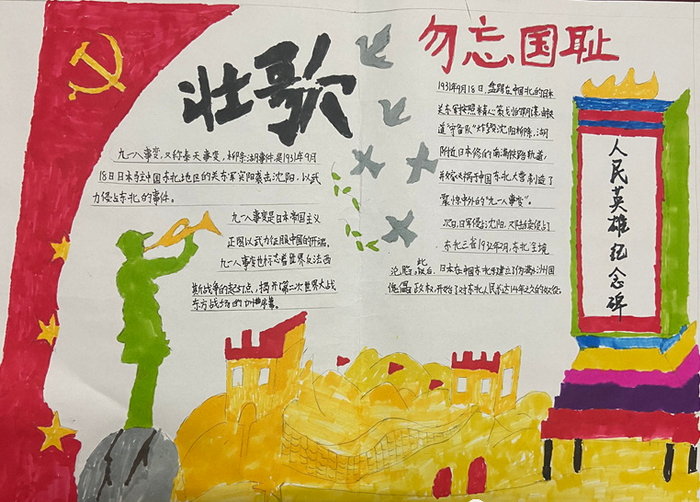 壮歌
九一八事变，又称奉天事变、柳条湖事件是1931年9月
18日日本在中国东北地区的关东军突然袭击沈阳，以武
力侵占东北的事件。
九一八事变是日本帝国主义
正图以武力征服中国的开端。
九一八事变也标志着世界反法西
斯战争的起点，揭开了第二次世界大战
东方战场的序幕。
勿忘国耻
1931年9月18日，盘踞在中国东北的日本
关东军按照精心策划的阴谋，由铁
道“守备队”炸毁沈阳柳条湖
附近日本修的南满铁路轨道，
并嫁祸于中国
震惊中外的“九一八事变”。
次日，日军侵占沈阳，又陆续侵占了
东北三省1932年2月，东北全境
沦陷，此后，日本在中国东北建立了伪满洲国
傀儡政权，开始了对东北人民长达14年之久的
人民英雄纪念碑